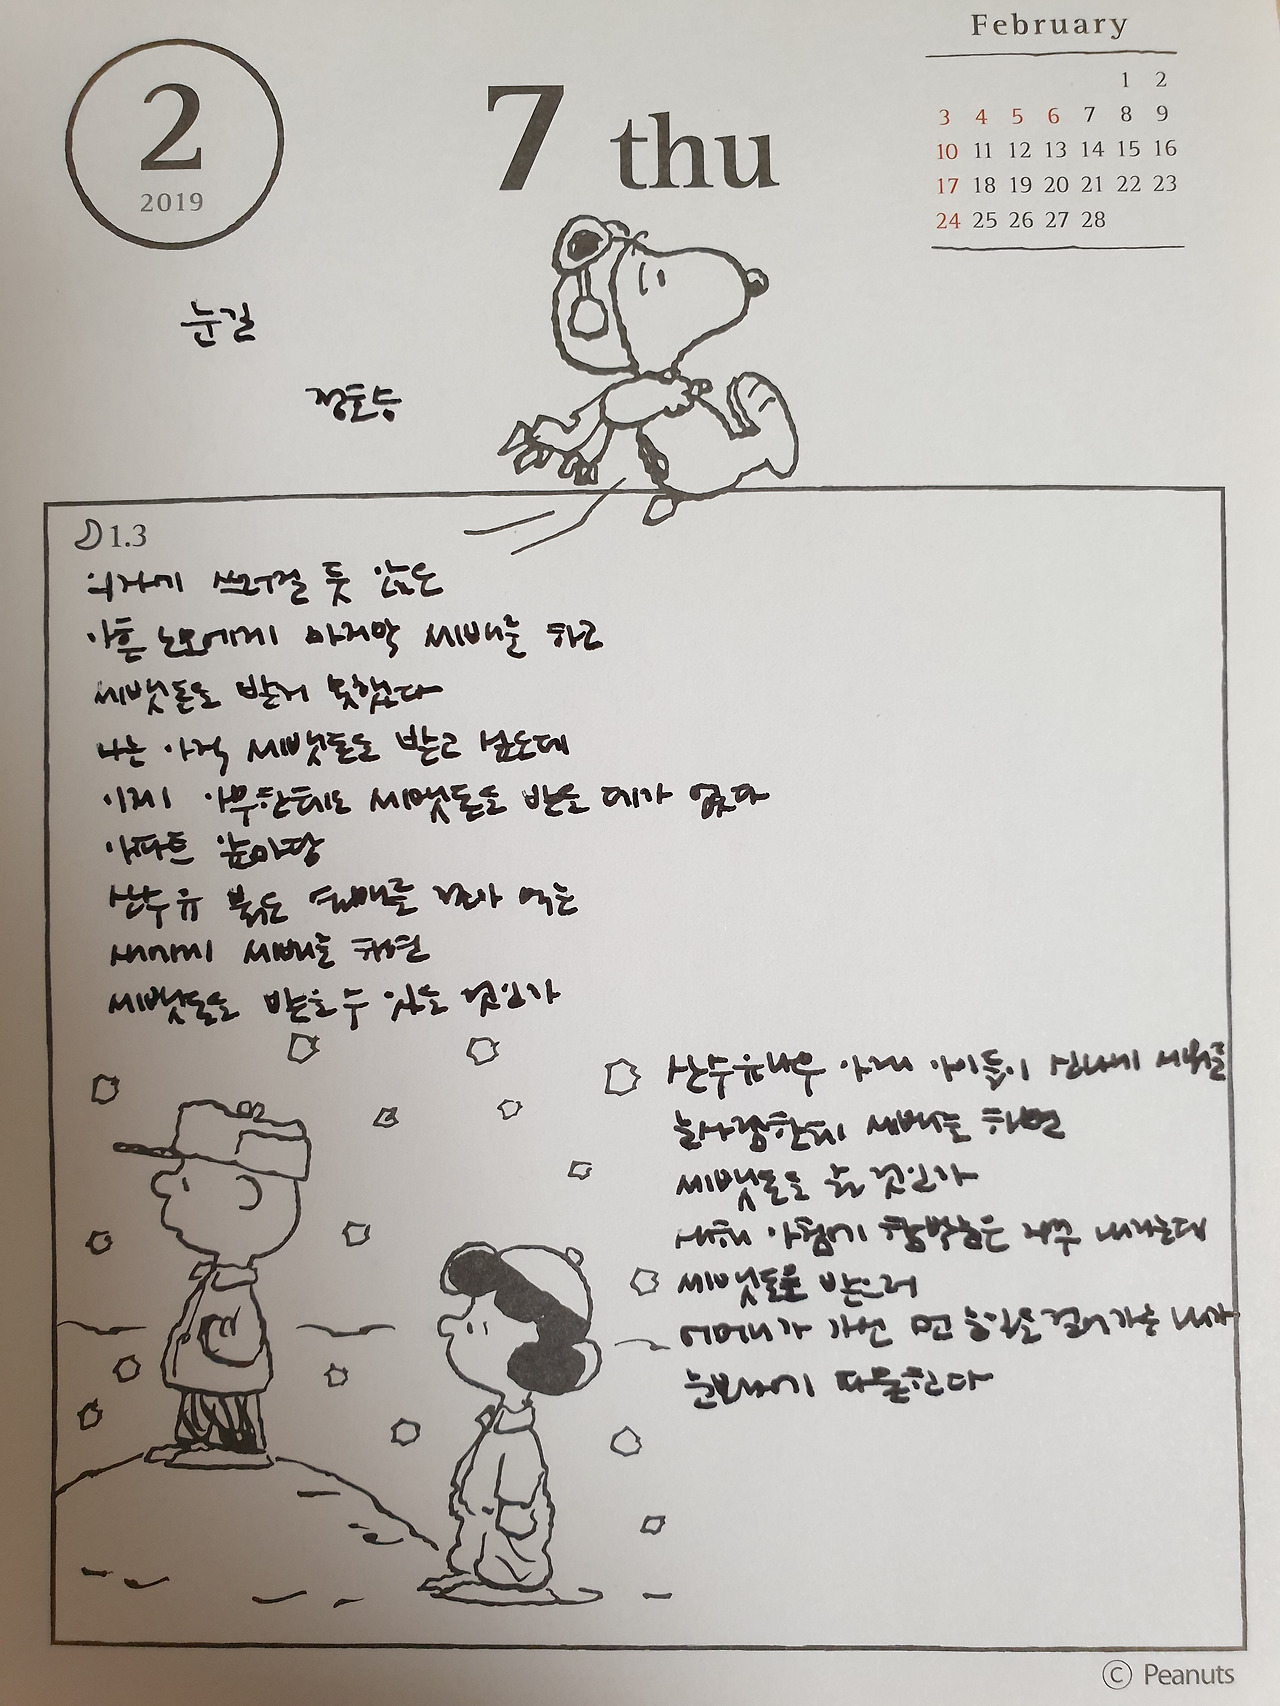 February
1 2
3 4 5 6 7 8 9
10 11 12 13 14 15 16
17 18 19 20 21 22 23
24 25 26 27 28
2
2019
7 thu
눈길
정호승
1.3
의자에 쓰러질 듯 앉은
아흔 노모에게 마지막 세배를 하고
세뱃돈도 받지 못했다
나는 아직 세뱃돈도 받고 싶은데
이제 아무한테도 세뱃돈을 받을 데가 없다
아파트 앞마당
산수유 붉은 열매를 쪼아 먹는
새에게 세배를 하면
세뱃돈을 받을 수 있을 것인가
산수유나무 아래 아이들이 신나게 세워둔
눈사람한테 세배를 하면
세뱃돈을 줄 것인가
새해 아침에 함박눈은 자꾸 내리는데
세뱃돈을 받으러
어머니가 가신 먼 눈길을 걸어가는 내가
눈보라에 파묻힌다
© Peanuts